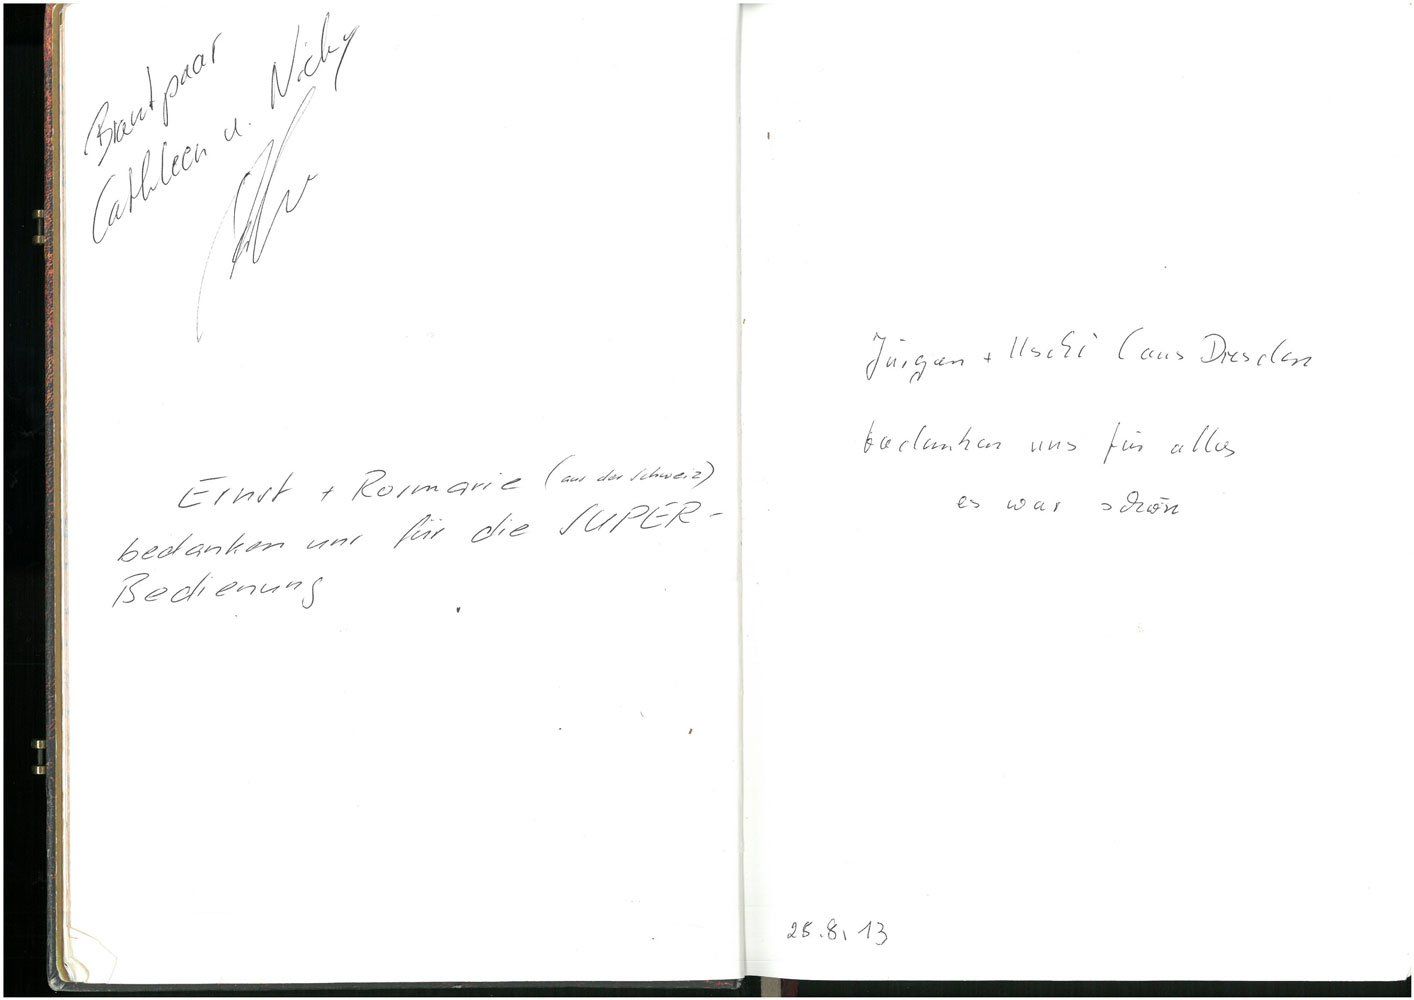 Brautpaar
Cathleen u. Nicky
Ernst + Rosmarie (aus der Schweiz)
bedanken uns für die SUPER-
Bedienung
Jürgen + Uschi (aus Dresden
bedanken uns für alles
es war schön
25.8.13